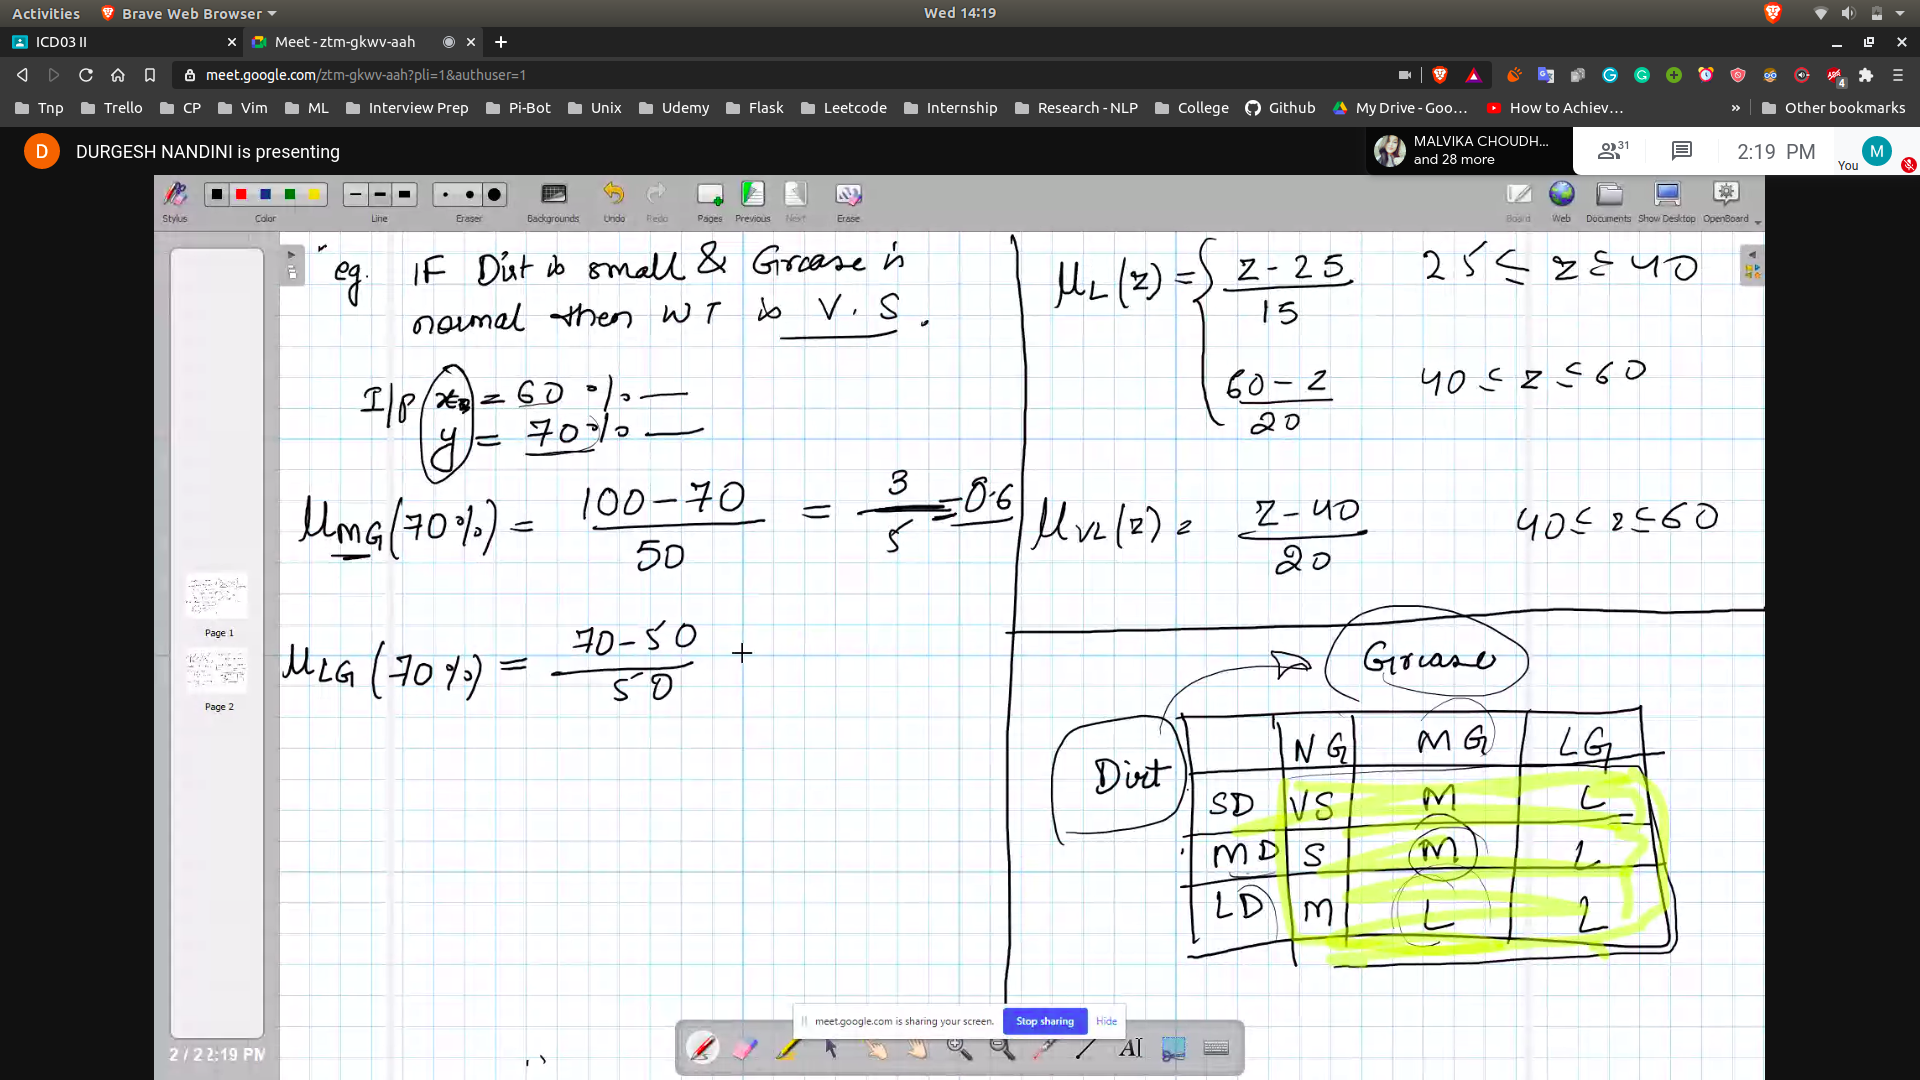 Activities Brave Web Browser Wed 14:19
ICD03 II Meet - ztm-gkwv-aah
meet.google.com/ztm-gkwv-aah?pli=1&authuser=1
Tnp Trello CP Vim ML Interview Prep Pi-Bot Unix Udemy Flask Leetcode Internship Research - NLP College Github My Drive - Goo... How to Achiev... » Other bookmarks
D DURGESH NANDINI is presenting
MALVIKA CHOUDH...
and 28 more
31 2:19 PM You M
Stylus Color Line Eraser Backgrounds Undo Redo Pages Previous Next Erase Board Web Documents Show Desktop OpenBoard
eg. IF Dirt is small & Grease is
normal then WT is V. S.
I/p x = 60 %
y = 70%
μMG(70%) = 100-70 / 50 = 3/5 = 0.6
μLG(70%) = 70-50 / 50
μL(z) = { z-25 / 15 25 ≤ z ≤ 40
60-z / 20 40 ≤ z ≤ 60
μVL(z) = z-40 / 20 40 ≤ z ≤ 60
Grease
Dirt
NG MG LG
SD VS M L
MD S M L
LD M L L
Page 1
Page 2
2 / 2 2:19 PM
meet.google.com is sharing your screen. Stop sharing Hide